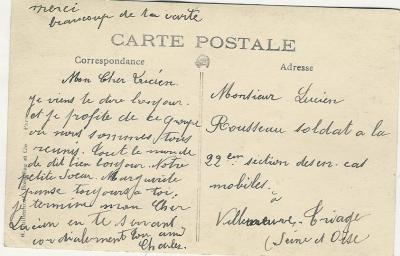 merci
beaucoup de ta carte
CARTE POSTALE
Correspondance
Adresse
Mon Cher Lucien
je viens te dire bonjour.
et je profite de ce groupe
ou nous sommes tous
reunis. tout le monde
te dit bien bonjour. Notre
petite Soeur Marguerite
pense toujours a toi.
je termine mon Cher
Lucien en te serrant
cordialement ton ami
Charles.
Monsieur Lucien
Rousseau soldat a la
22em section des en. cas
mobiles.
à
Villeneuve-Triage
(Seine et Oise